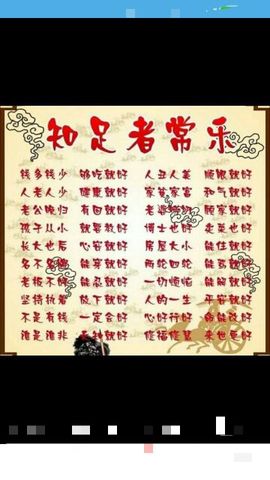 知足者常乐
钱多钱少 够吃就好 人丑人美 顺眼就好
人老人少 健康就好 家贫家富 和气就好
老公晚归 有回就好 老婆唠叨 顾家就好
孩子从小 就要教好 博士也好 卖菜也好
长大以后 心安就好 房屋大小 能住就好
名不名牌 能穿就好 两轮四轮 能驾就好
老板不好 能忍就好 一切烦恼 能解就好
坚持执着 放下就好 人的一生 平安就好
不是有钱 一定会好 心好行好 命能改好
谁是谁非 天知就好 修福修慧 来世更好